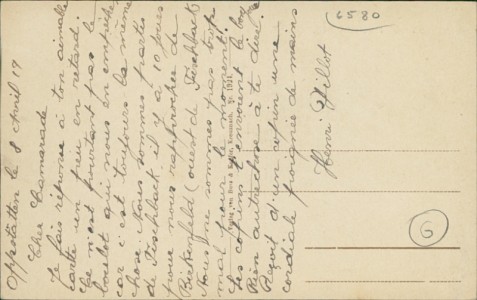 Oppstetten le 8 Avril 19
Cher Camarade
Je fais réponse à ton aimable
carte un peu en retard.
Ce n'est pourtant pas le
boulot qui nous en empêche,
car c'est toujours la même
chose. Nous sommes partis
de Fischback il y a 10 jours
pour nous rapprocher de
Birkenfeld (ouest de Fischback)
Nous ne sommes pas trop
mal pour le moment.
Les copains t'envoient le bonj
Rien autre chose à te dire
Reçoit d'un copain une
cordiale poignée de mains
Henri Millot
6580
6